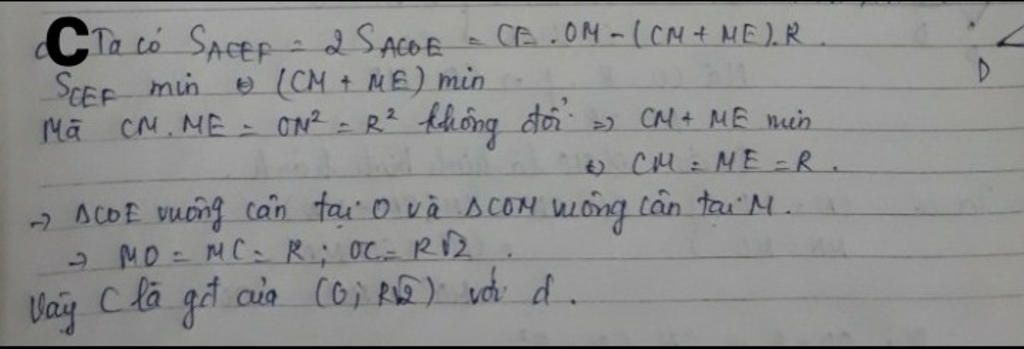 C Ta có SΔCEF = 2 SΔCOE = CE . OM = (CM + ME).R.
D
SCEF min ⇔ (CM + ME) min
Mà CM . ME = OM² = R² không đổi ⇒ CM + ME min
⇔ CM = ME = R.
→ ΔCOE vuông cân tại O và ΔCOM vuông cân tại M.
→ MO = MC = R ; OC = R√2 .
Vậy C là gđ của (O; R√2) với d .